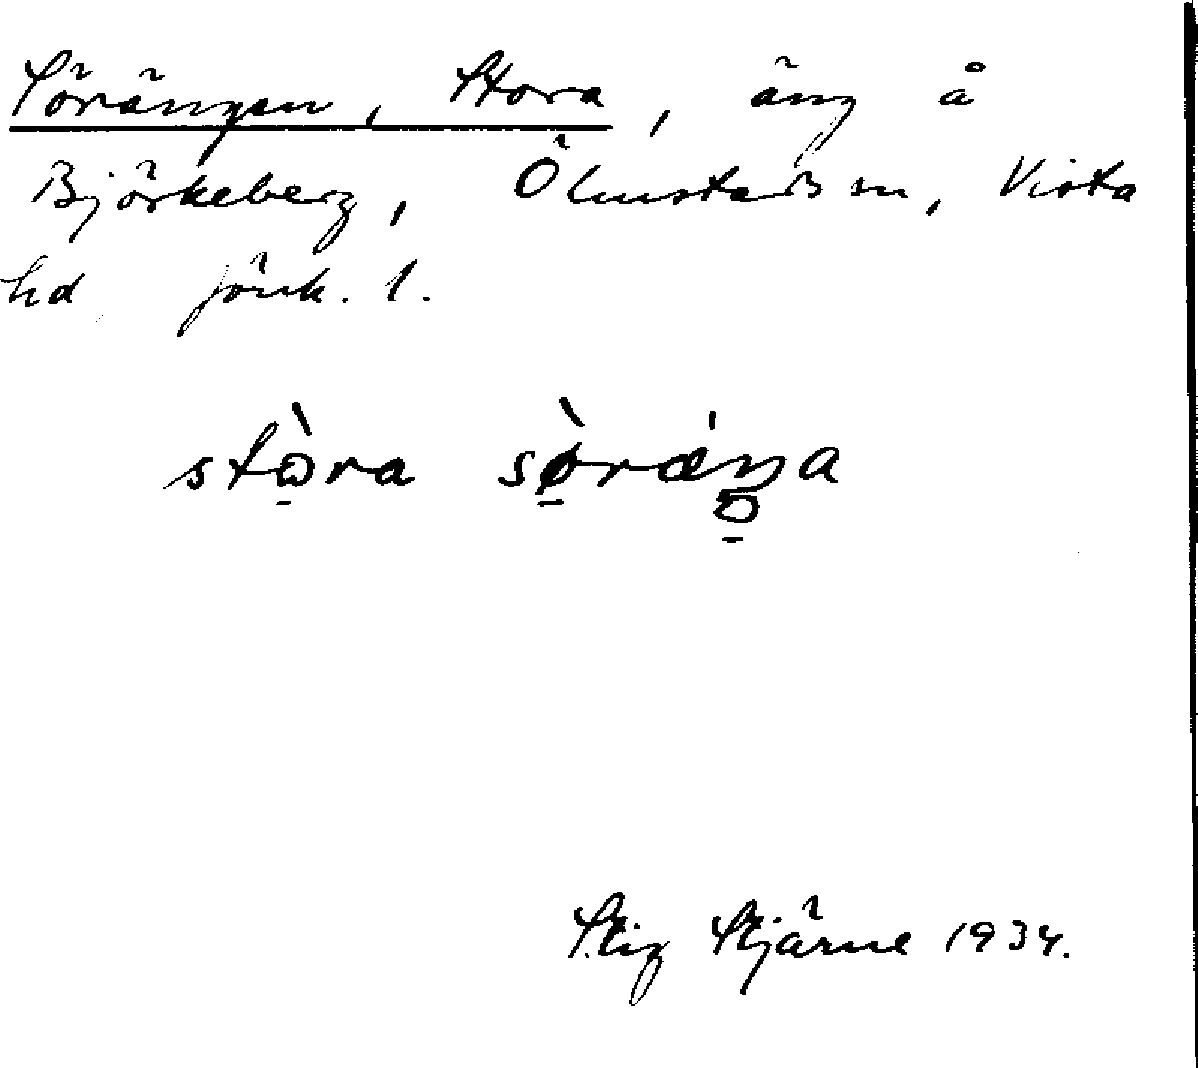 Sörängen, Stora, äng å
Björkeberg, Ölmstads sn, Vista
hd Jönk. l.
stò̱ra sø̱̀rǽŋa
Stig Stjärne 1934.